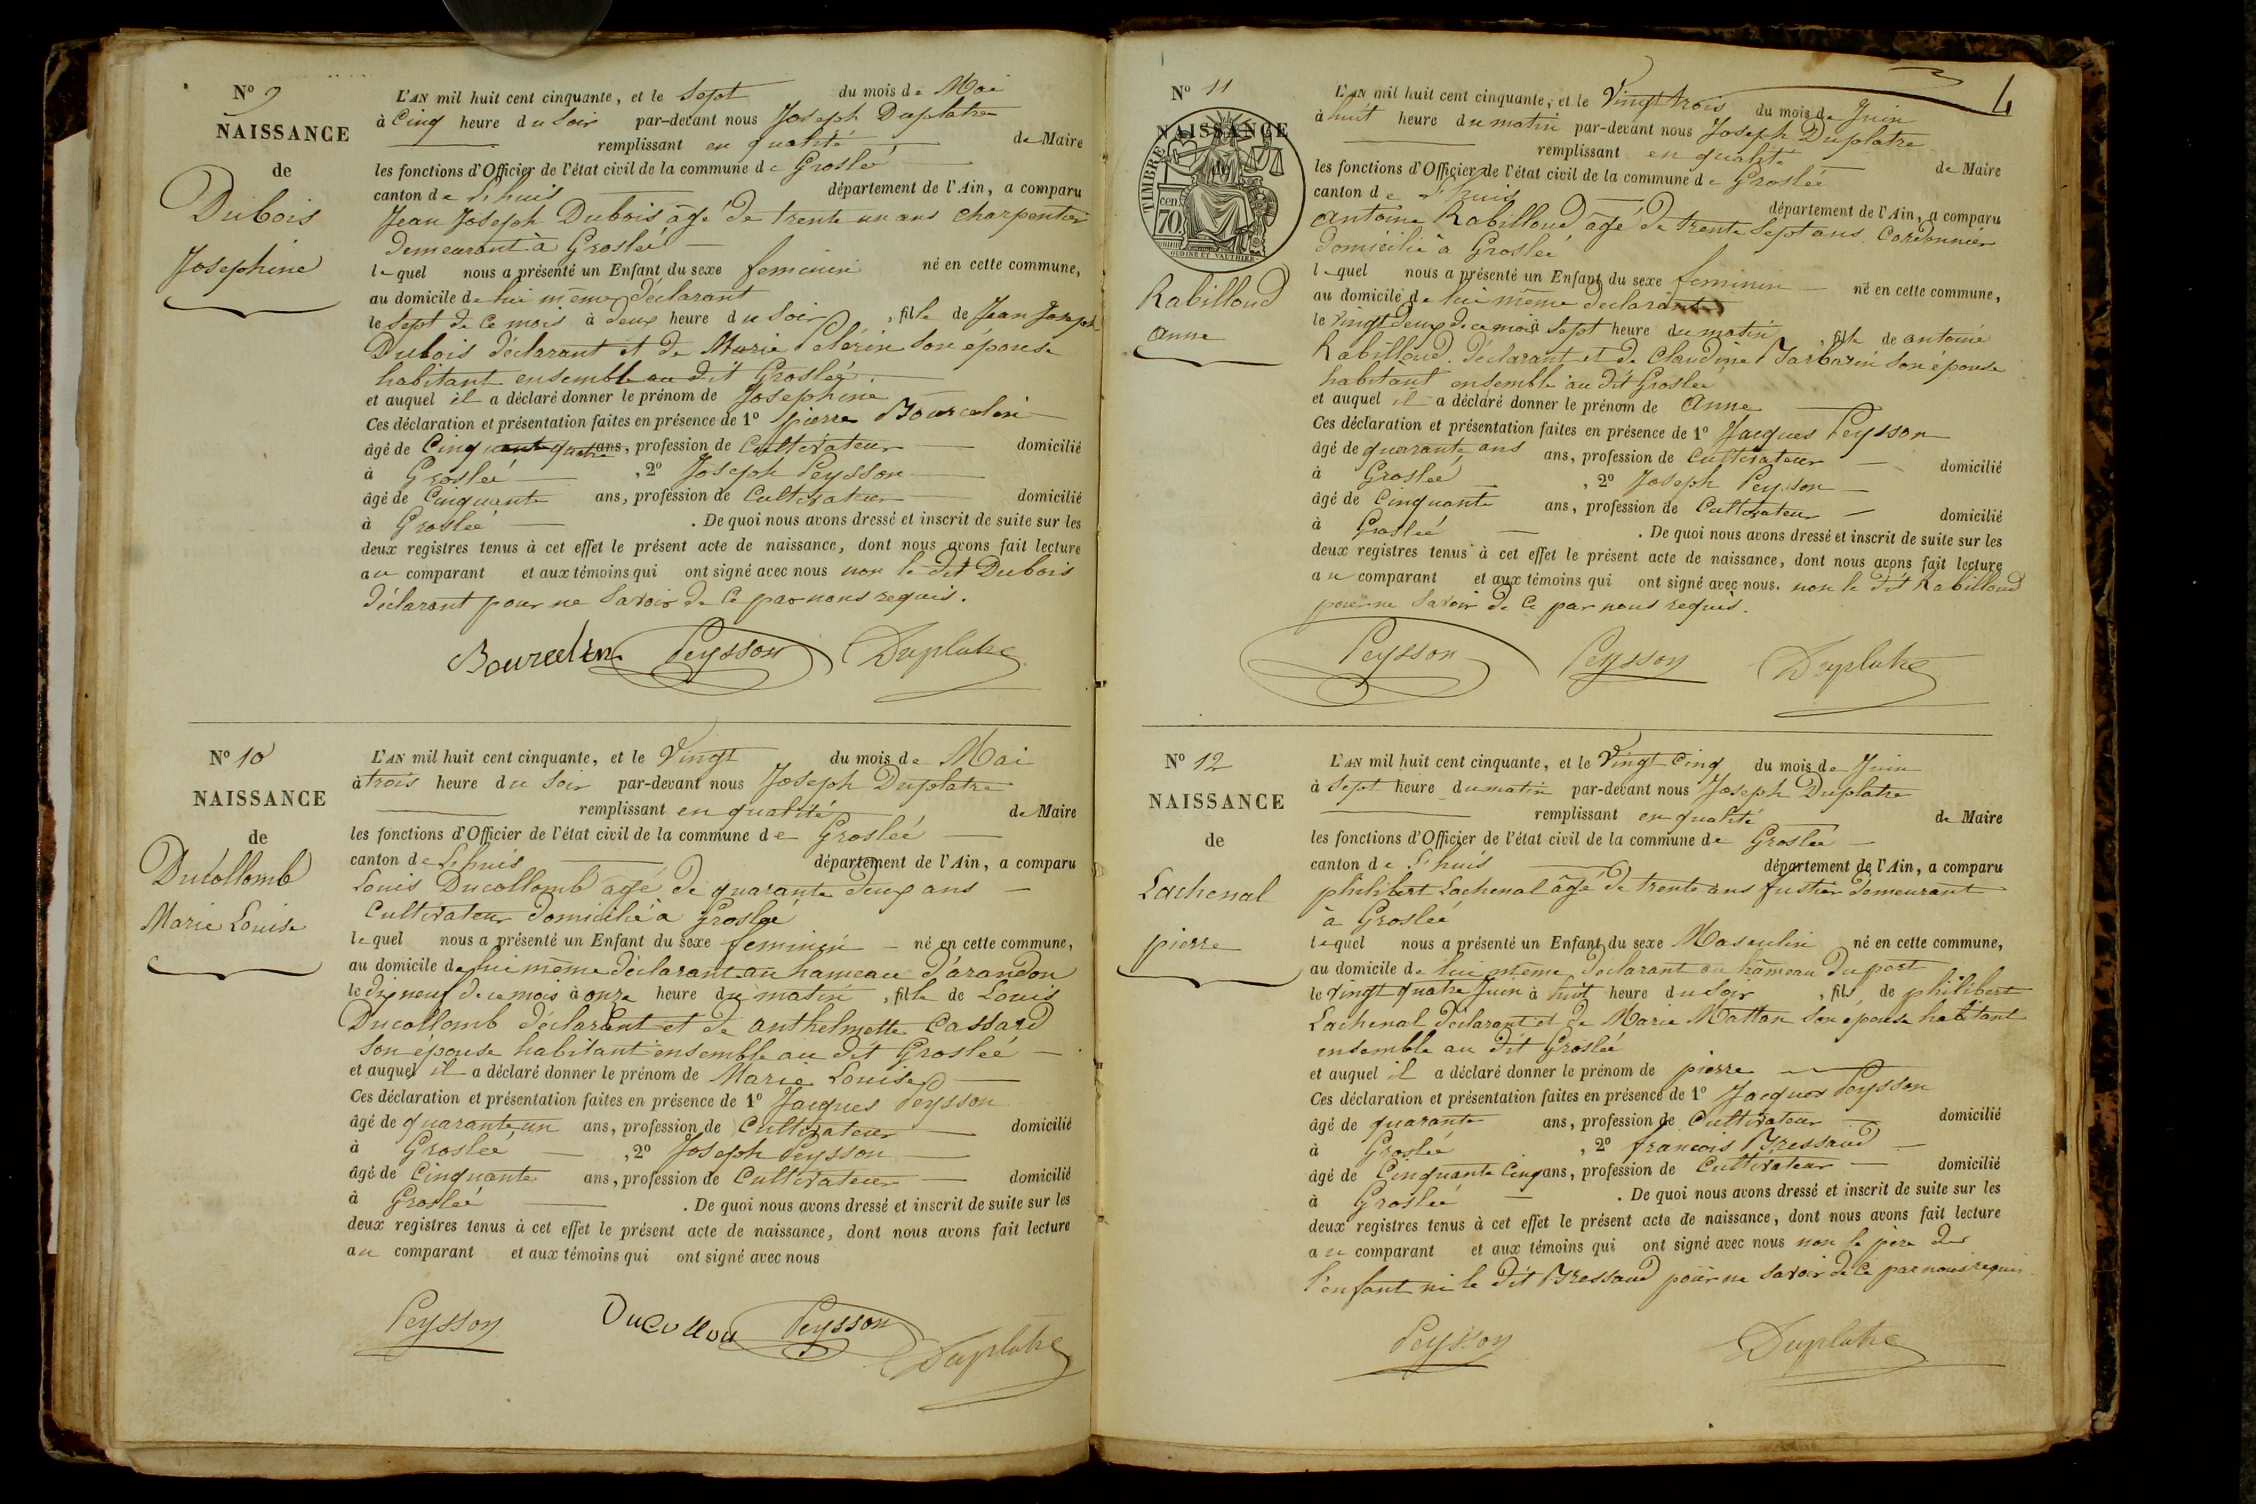 Nº 9
NAISSANCE
de
Dubois
Josephine
L'AN mil huit cent cinquante, et le Sept du mois de Mai
à Cinq heure du Soir par-devant nous Joseph Duplatre
remplissant en qualité de Maire
les fonctions d'Officier de l'état civil de la commune de Groslée
canton de Lhuis département de l'Ain, a comparu
Jean Joseph Dubois âgé de trente un ans charpentier
demeurant à Groslée
lequel nous a présenté un Enfant du sexe feminin né en cette commune,
au domicile de lui même déclarant
le Sept de ce mois à deux heure du Soir, fille de Jean Joseph
Dubois déclarant et de Marie Pelérin son épouse
habitant ensemble au dit Groslée.
et auquel il a déclaré donner le prénom de Josephine
Ces déclaration et présentation faites en présence de 1º pierre Bourcelin
âgé de Cinquante quatre ans, profession de Cultivateur domicilié
à Groslée, 2º Joseph Peysson
âgé de Cinquante ans, profession de Cultivateur domicilié
à Groslée. De quoi nous avons dressé et inscrit de suite sur les
deux registres tenus à cet effet le présent acte de naissance, dont nous avons fait lecture
au comparant et aux témoins qui ont signé avec nous non le dit Dubois
déclarant pour ne Savoir de Ce par nous requis.
Bourcelin Peysson Duplatre
Nº 10
NAISSANCE
de
Ducollomb
Marie Louise
L'AN mil huit cent cinquante, et le Vingt du mois de Mai
à trois heure du Soir par-devant nous Joseph Duplatre
remplissant en qualité de Maire
les fonctions d'Officier de l'état civil de la commune de Groslée
canton de Lhuis département de l'Ain, a comparu
Louis Ducollomb âgé de quarante deux ans
Cultivateur domicilié à Groslée
lequel nous a présenté un Enfant du sexe feminin né en cette commune,
au domicile de lui même déclarant au hameau d'arandon
le dix neuf de ce mois à onze heure du matin, fille de Louis
Ducollomb déclarant et de anthelmette Cassard
son épouse habitant ensemble au dit Groslée
et auquel il a déclaré donner le prénom de Marie Louise
Ces déclaration et présentation faites en présence de 1º Jacques Peysson
âgé de quarante un ans, profession de Cultivateur domicilié
à Groslée, 2º Joseph Peysson
âgé de Cinquante ans, profession de Cultivateur domicilié
à Groslée. De quoi nous avons dressé et inscrit de suite sur les
deux registres tenus à cet effet le présent acte de naissance, dont nous avons fait lecture
au comparant et aux témoins qui ont signé avec nous
Peysson Peysson Duplatre
4
Nº 11
NAISSANCE
de
TIMBRE
70
cen
OUDINE ET VAUTHIER
Rabilloud
anne
L'AN mil huit cent cinquante, et le Vingt trois du mois de Juin
à huit heure du matin par-devant nous Joseph Duplatre
remplissant en qualité de Maire
les fonctions d'Officier de l'état civil de la commune de Groslée
canton de Lhuis département de l'Ain, a comparu
antoine Rabilloud âgé de trente Sept ans Cordonnier
domicilié à Groslée
lequel nous a présenté un Enfant du sexe feminin né en cette commune,
au domicile de lui même déclarant
le Vingt deux de ce mois à Sept heure du matin, fille de antoine
Rabilloud déclarant et de Claudine Barbarin son épouse
habitant ensemble au dit Groslée
et auquel il a déclaré donner le prénom de anne
Ces déclaration et présentation faites en présence de 1º Jacques Peysson
âgé de quarante ans ans, profession de Cultivateur domicilié
à Groslée, 2º Joseph Peysson
âgé de Cinquante ans, profession de Cultivateur domicilié
à Groslée. De quoi nous avons dressé et inscrit de suite sur les
deux registres tenus à cet effet le présent acte de naissance, dont nous avons fait lecture
au comparant et aux témoins qui ont signé avec nous. non le dit Rabilloud
pour ne Savoir de Ce par nous requis.
Peysson Peysson Duplatre
Nº 12
NAISSANCE
de
Lachenal
pierre
L'AN mil huit cent cinquante, et le Vingt Cinq du mois de Juin
à Sept heure du matin par-devant nous Joseph Duplatre
remplissant en qualité de Maire
les fonctions d'Officier de l'état civil de la commune de Groslée
canton de Lhuis département de l'Ain, a comparu
philibert Lachenal âgé de trente ans fustier demeurant
à Groslée
lequel nous a présenté un Enfant du sexe Masculin né en cette commune,
au domicile de lui même déclarant au hameau du port
le Vingt quatre Juin à huit heure du Soir, fils de philibert
Lachenal déclarant et de Marie Mattan son épouse habitant
ensemble au dit Groslée
et auquel il a déclaré donner le prénom de pierre
Ces déclaration et présentation faites en présence de 1º Jacques Peysson
âgé de quarante ans, profession de Cultivateur domicilié
à Groslée, 2º francois Bressaud
âgé de Cinquante Cinq ans, profession de Cultivateur domicilié
à Groslée. De quoi nous avons dressé et inscrit de suite sur les
deux registres tenus à cet effet le présent acte de naissance, dont nous avons fait lecture
au comparant et aux témoins qui ont signé avec nous non le père de
l'enfant ni le dit Bressaud pour ne savoir de Ce par nous requis
Peysson Duplatre